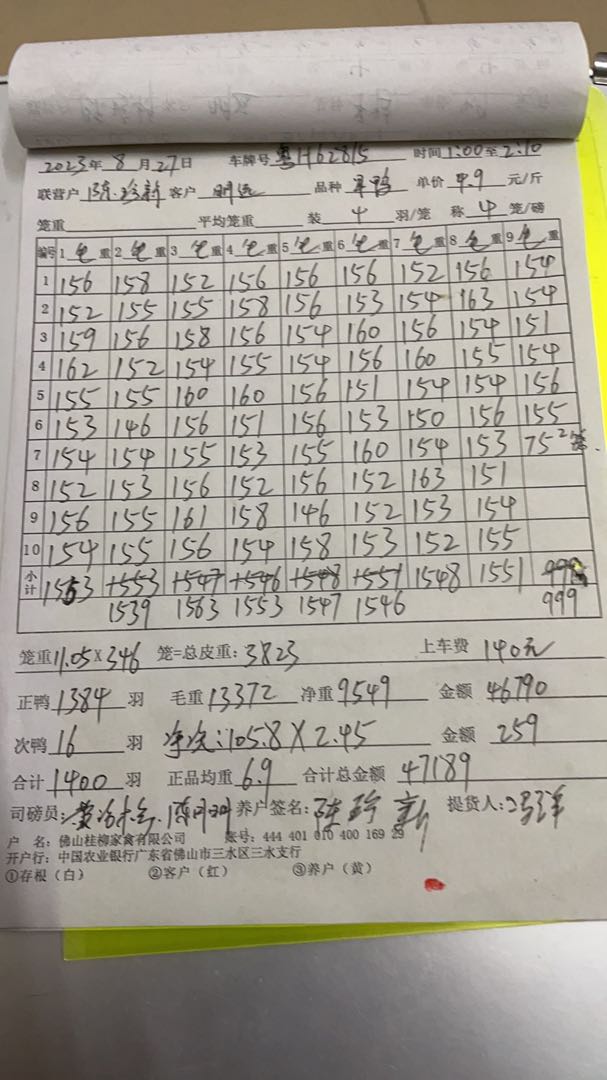 2023年8月27日 车牌号 粤H62815 时间1:00至2:10
联营户 陈珍新 客户 明远 品种 单价 4.9 元/斤
笼重 平均笼重 装 4 羽/笼 称 4 笼/磅
编号 1 毛重 2 毛重 3 毛重 4 毛重 5 毛重 6 毛重 7 毛重 8 毛重 9 毛重
1 156 158 152 156 156 156 152 156 154
2 152 155 155 158 156 153 154 163 154
3 159 156 158 156 154 160 156 154 151
4 162 152 154 155 154 156 160 155 154
5 155 155 160 160 156 151 154 154 156
6 153 146 156 151 156 153 150 156 155
7 154 154 155 153 155 160 154 153 75 2笼
8 152 153 156 152 156 152 163 151
9 156 155 161 158 146 152 153 154
10 154 155 156 154 158 153 152 155
小计 1553 1553 1547 1546 1548 1551 1548 1551 999
1539 1563 1553 1547 1546 999
笼重 11.05×346 笼=总皮重: 3823 上车费 140元
正鸭 1384 羽 毛重 13372 净重 9549 金额 46790
次鸭 16 羽 净次:105.8×2.45 金额 259
合计 1400 羽 正品均重 6.9 合计总金额 47189
司磅员: 养户签名: 陈珍新 提货人:
户 名: 佛山桂柳家禽有限公司 账号: 444 401 010 400 169 29
开户行: 中国农业银行广东省佛山市三水区三水支行
①存根(白) ②客户(红) ③养户(黄)